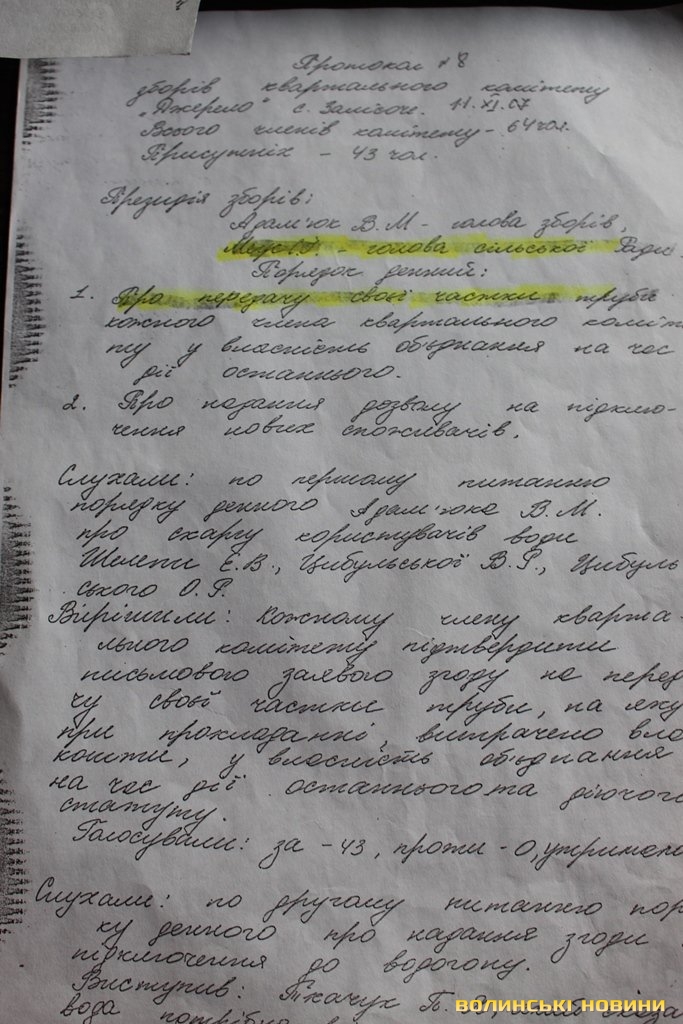 Протокол №8
зборів квартального комітету
"Джерело" с. Залізоче. 11.XI.07
Всього членів комітету - 64 чол.
Присутніх - 43 чол.
Президія зборів:
Адам'юк В.М - голова зборів,
- голова сільської Ради.
Порядок денний:
1. Про передачу своєї частки труби
кожного члена квартального коміте
ту у власність об'єднання на час
дії останнього.
2. Про надання дозволу на підклю-
чення нових споживачів.
Слухали: по першому питанню
порядку денного Адам'юка В.М.
про скаргу користувачів води
Шелепи Є.В., Цибульської В.Р., Цибуль
ського О.Р.
Вирішили: Кожному члену кварта-
льного комітету підтвердити
письмового заявою згоду на перед
чу своєї частки труби, на яку
при прокладанні, витрачено вла
кошти, у власність об'єднання
на час дії останнього та діючого
статуту.
Голосували: за - 43, проти - 0, утримал
Слухали: по другому питанню пор
ку денного про надання згоди
підключення до водогону.
Виступив: Ткачук П.
вода
ВОЛИНСЬКІ НОВИНИ